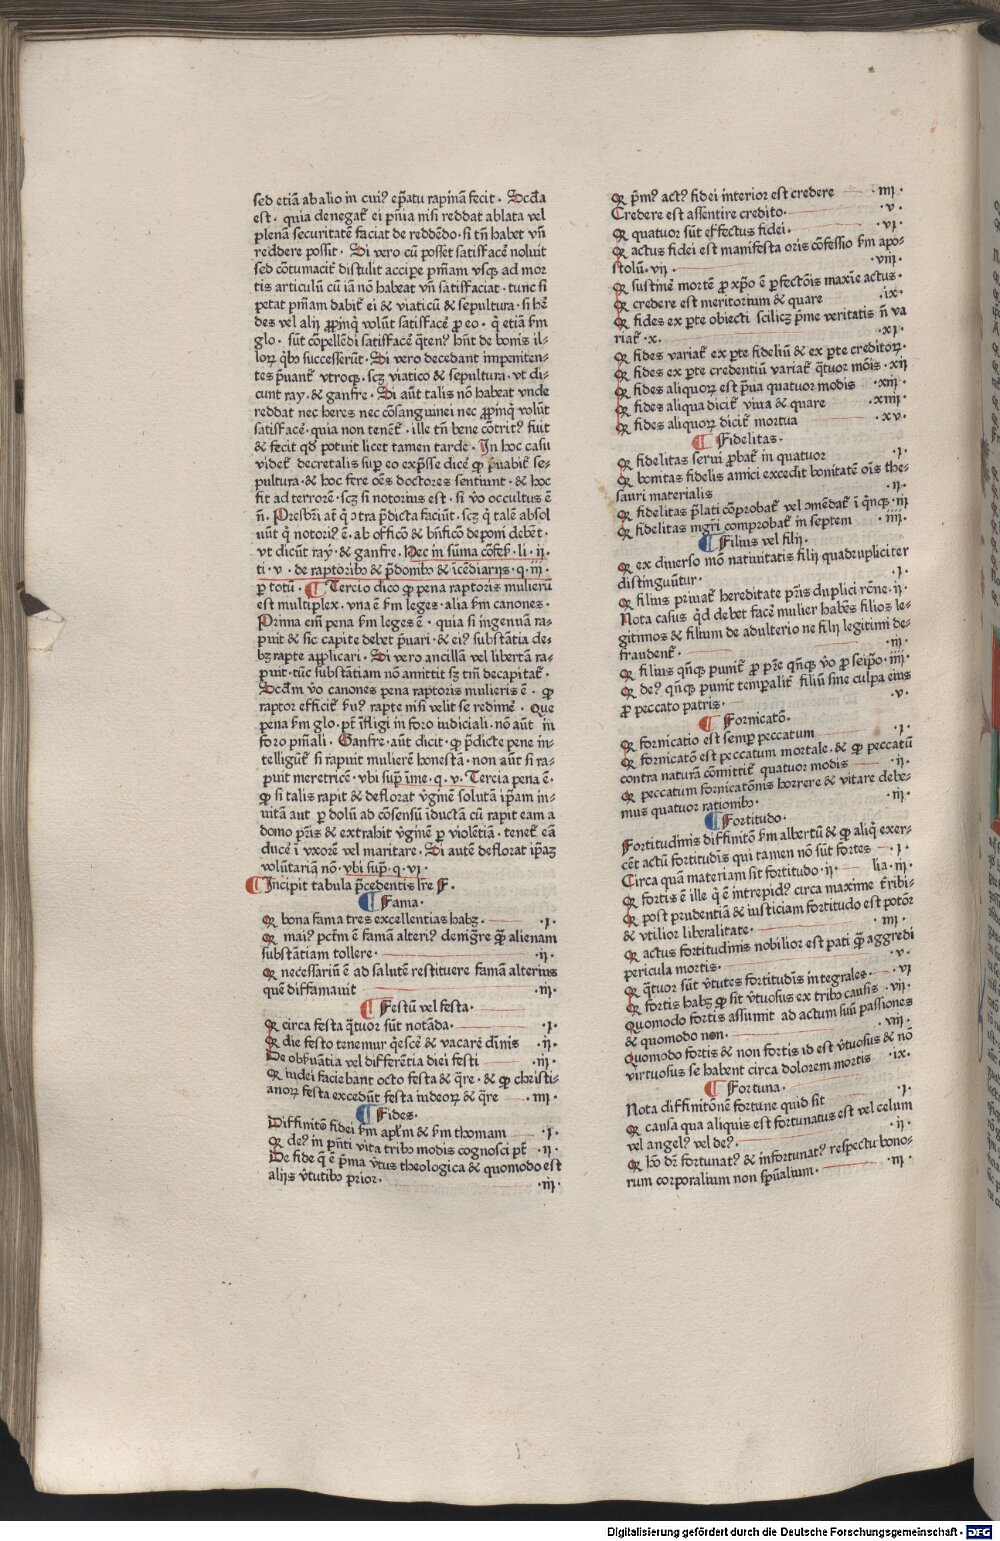 sed etiā ab alio in cuiꝰ ep̄atu rapinā fecit · Scd̄a
est · quia denegat᷑ ei pn̄ia nisi reddat ablata vel
plenā securitatē faciat de reddēdo · si tn̄ habet vn̄
reddere possit · Si vero cū posset satisfacē noluit
sed cōtumacit᷑ distulit accipe pn̄iam vsq̄ ad mor
tis articulū cū iā nō habeat vn̄ satisfaciat · tunc si
petat pn̄iam dabit᷑ ei & viaticū & sepultura · si hē
des vel alij ꝓpinq̄ volūt satisfacē ꝑ eo · q̄ etiā ẜm
glo · sūt cōpellēdi satisfacē q̄tenꝰ hn̄t de bonis il-
loꝝ qb̄o successerūt · Si vero decedant impeniten-
tes p̄uant᷑ vtroqꝫ · scꝫ viatico & sepultura · vt di-
cunt ray · & ganfre · Si aūt talis nō habeat vnde
reddat nec heres nec cōsanguinei nec ꝓpinq̄ volūt
satisfacē · quia non tenet᷑ · ille tn̄ bene cōtritꝰ fuit
& fecit qd̄ potuit licet tamen tarde · In hoc casu
videt᷑ decretalis suꝑ eo exp̄sse dicē ꝙ p̄uabit᷑ se-
pultura · & hoc fere oēs doctores sentiunt · & hoc
fit ad terrorē · scꝫ si notorius est · si v̄o occultus ē
n̄ · Presbr̄i at̄ q̄ ɔtra p̄dicta faciūt · scꝫ q̄ talē absol
uūt q̄ notoriꝰ ē · ab officō & bn̄ficō deponi debēt ·
vt dicūt ray · & ganfre · Nec in sūma cōfes̄ · li · ii ·
ti · v · de raptorib̄o & p̄domb̄o & īcēdiarijs · q · iii ·
ꝑ totū · Tercio dico ꝙ pena raptoris mulierū
est multiplex · vna ē ẜm leges · alia ẜm canones ·
Prima em̄ pena ẜm leges ē · quia si ingenuā ra-
puit & sic capite debet p̄uari · & eiꝰ substātia de-
bꝫ rapte applicari · Si vero ancillā vel libertā ra-
puit · tūc substātiam nō amittit sꝫ tn̄ decapitat᷑ ·
Scd̄m v̄o canones pena raptoris mulieris ē · ꝙ
raptor efficit᷑ ẜuꝰ rapte nisi velit se redimē · Que
pena ẜm glo · pt̄ īfligi in foro iudiciali · nō aūt in
foro pn̄iali · Ganfre · aūt dicit · ꝙ p̄dicte pene in-
telligūt᷑ si rapuit mulierē honestā · non aūt si ra-
puit meretricē · vbi sup̄ īme · q · v · Tercia pena ē ·
ꝙ si talis rapit & deflorat v̄ginē solutā ip̄am in-
uitā aut ꝑ dolū ad cōsensū iductā cū rapit eam a
domo pr̄is & extrahit v̄ginē ꝑ violētiā · tenet᷑ eā
ducē ī vxorē vel maritare · Si autē deflorat ip̄aꝫ
volūtariā nō · vbi sup̄ · q · vi ·
Incipit tabula p̄cedentis lr̄e F ·
Fama ·
Qꝛ bona fama tres excellentias habꝫ · ·i·
Qꝛ maiꝰ pct̄m ē famā alteriꝰ denigr̄e q̄ꝫ alienam
substātiam tollere · ·ii·
Qꝛ necessariū ē ad salutē restituere famā alterius
quē diffamauit ·iii·
Festū vel festa ·
Qꝛ circa festa q̄tuor sūt notāda · ·i·
Qꝛ die festo tenemur q̄escē & vacare diūnis ·ii·
De obẜuātia vel differētia diei festi ·iii·
Qꝛ iudei faciebant octo festa & q̄re · & ꝙ christi-
anoꝝ festa excedūt festa iudeoꝝ & q̄re ·iiii·
Fides ·
Diffinitō fidei ẜm apl̄m & ẜm thomam ·i·
Qꝛ deꝰ in pn̄ti vita trib̄o modis cognosci pt̄ ·ii·
De fide q̄ ē p̄ma v̄tus theologica & quomodo est
alijs v̄tutib̄o prior · ·iii·
Qꝛ p̄mꝰ actꝰ fidei interior est credere ·iiii·
Credere est assentire credito · ·v·
Qꝛ quatuor sūt effectus fidei · ·vi·
Qꝛ actus fidei est manifesta oris cōfessio ẜm apo-
stolū · vii · ·viii·
Qꝛ sustinē mortē ꝓ xp̄o ē ꝑfectōis maxīe actus ·
Qꝛ credere est meritorium & quare ·ix·
Qꝛ fides ex ꝑte obiecti scilicꝫ p̄me veritatis n̄ va
riat᷑ · x · ·xi·
Qꝛ fides variat᷑ ex ꝑte fideliū & ex ꝑte creditoꝝ ·
Qꝛ fides ex ꝑte credentiū variat᷑ q̄tuor mōis · xii
Qꝛ fides aliquoꝝ est p̄ua quatuor modis ·xiii·
Qꝛ fides aliqua dicit᷑ viua & quare ·xiiii·
Qꝛ fides aliquoꝝ dicit᷑ mortua ·xv·
Fidelitas ·
Qꝛ fidelitas serui ꝓbat᷑ in quatuor ·i·
Qꝛ bonitas fidelis amici excedit bonitatē oīs the-
sauri materialis ·ii·
Qꝛ fidelitas p̄lati cōprobat᷑ vel ɔmēdat᷑ ī q̄nqꝫ · iii
Qꝛ fidelitas mgr̄i comprobat᷑ in septem ·iiii·
Filius vel filij ·
Qꝛ ex diuerso mō natiuitatis filij quadrupliciter
distinguūtur · ·i·
Qꝛ filius priuat᷑ hereditate pr̄is duplici rōne · ii ·
Nota casus q̄d debet facē mulier habēs filios le-
gitimos & filium de adulterio ne filij legitimi de-
fraudent᷑ · ·iii·
Qꝛ filius q̄nqꝫ punit᷑ ꝓ pr̄e q̄nqꝫ v̄o ꝓ seip̄o · iiii ·
Qꝛ deꝰ q̄nqꝫ punit tempalit᷑ filiū sine culpa eius
ꝓ peccato patris · ·v·
Fornicatō ·
Qꝛ fornicatio est semꝑ peccatum ·i·
Qꝛ fornicatō est peccatum mortale · & ꝙ peccatū
contra naturā cōmittit᷑ quatuor modis ·ii·
Qꝛ peccatum fornicatōnis horrere & vitare debe-
mus quatuor rationib̄o · ·iii·
Fortitudo ·
Fortitudinis diffinitō ẜm albertū & ꝙ aliq̄ exer-
cēt actū fortitudīs qui tamen nō sūt fortes ·i·
Circa quā materiam sit fortitudo · ii · lia · iii ·
Qꝛ fortis ē ille q̄ ē intrepidꝰ circa maxime t᷑ribi-
Qꝛ post prudentiā & iusticiam fortitudo est potōr
& vtilior liberalitate · ·iiii·
Qꝛ actus fortitudinis nobilior est pati q̄ꝫ aggredi
pericula mortis · ·v·
Qꝛ q̄tuor sūt v̄tutes fortitudīs integrales · ·vi
Qꝛ fortis habꝫ ꝙ sit v̄tuosus ex trib̄o causis · vii ·
Quomodo fortis assumit ad actum suū passiones
& quomodo non · ·viii·
Quomodo fortis & non fortis id est v̄tuosus & nō
virtuosus se habent circa dolorem mortis ·ix·
Fortuna ·
Nota diffinitōnē fortune quid sit ·i·
Qꝛ causa qua aliquis est fortunatus est vel celum
vel angelꝰ vel deꝰ · ·ii·
Qꝛ hō dr̄ fortunatꝰ & infortunatꝰ respectu bono-
rum corporalium non sp̄ualium · ·iii·
Digitalisierung gefördert durch die Deutsche Forschungsgemeinschaft - DFG